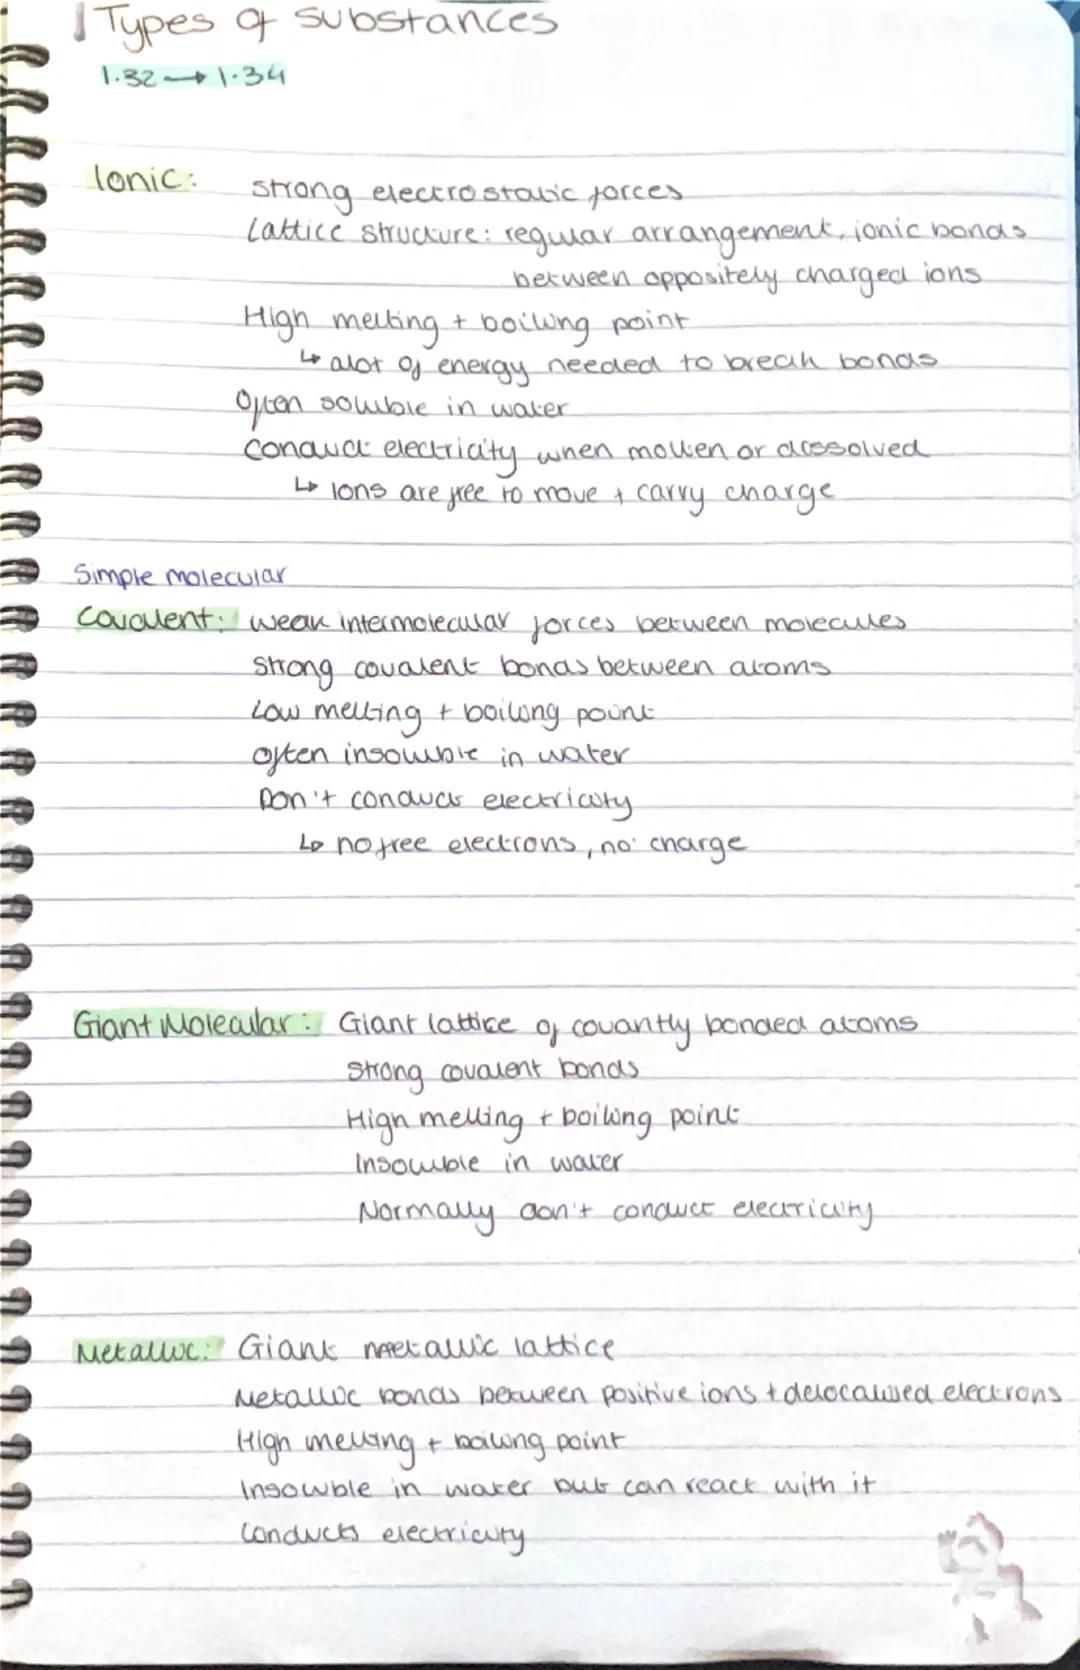 Types of substances
1.32 → 1.34
Ionic: strong electrostatic forces
Lattice structure: regular arrangement, ionic bonds
between oppositely charged ions
High melting + boiling point
↳ alot of energy needed to break bonds
Often soluble in water
Conduct electricity when molten or dissolved
↳ Ions are free to move + carry charge
Simple molecular
Covalent: weak intermolecular forces between molecules
Strong covalent bonds between atoms
Low melting + boiling point
often insoluble in water
Don't conduct electricity
↳ no free electrons, no charge
Giant Molecular: Giant lattice of covantly bonded atoms
Strong covalent bonds
High melting + boiling point
Insoluble in water
Normally don't conduct electricity
Metallic: Giant metallic lattice
Metallic bonds between positive ions + delocalised electrons
High melting + boiling point
Insoluble in water but can react with it
Conducts electricity